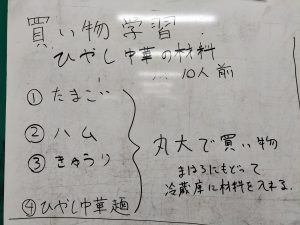 買い物学習
ひやし中華の材料
10人前
①たまご
②ハム
③きゅうり
④ひやし中華麺
丸大で買い物
まほろにもどって
冷蔵庫に材料を入れる。